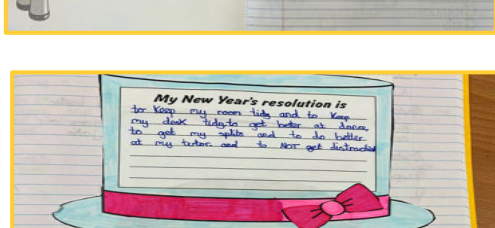 My New Year's resolution is
to Keep my room tidy and to Keep
my desk tidy to get beter at dance,
to get my splits and to do better
at my tutor and to NOT get distracted